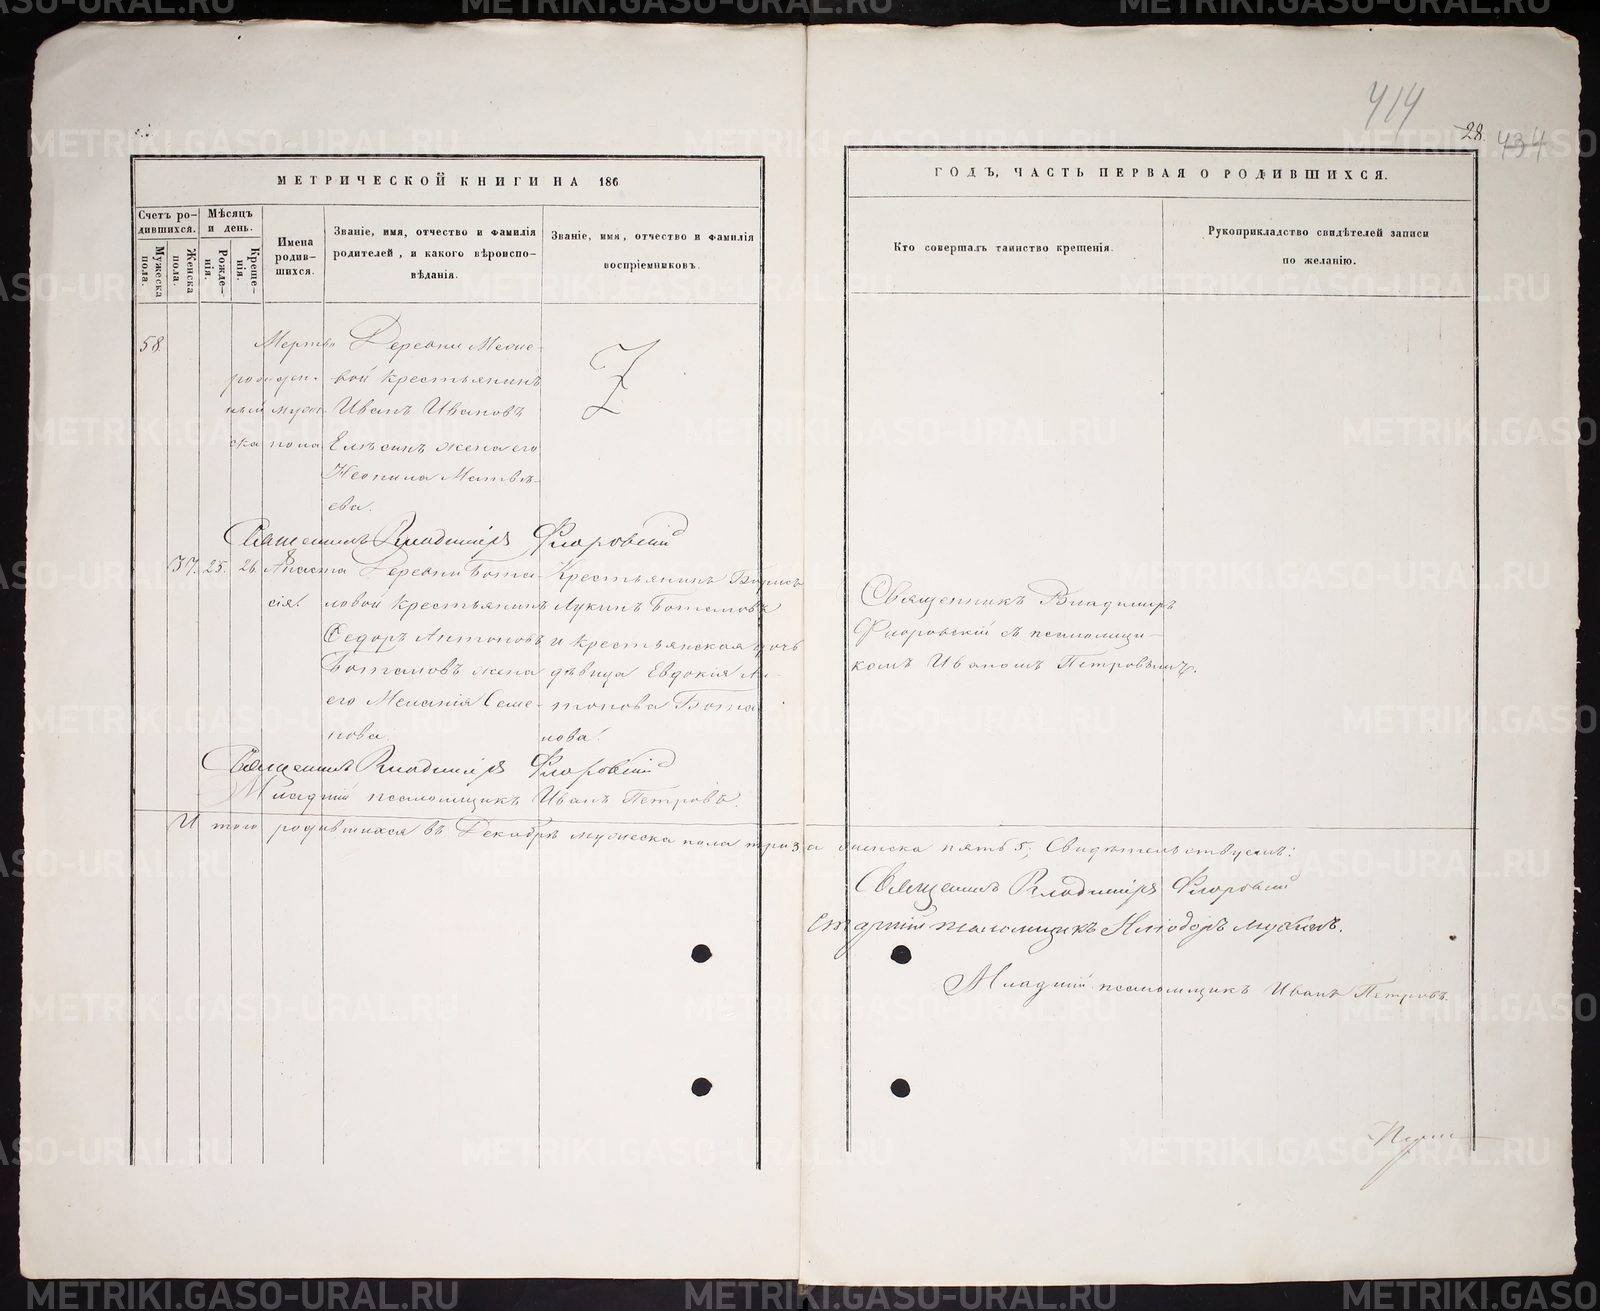 414
28.
434
МЕТРИЧЕСКОЙ КНИГИ НА 186
ГОДЪ, ЧАСТЬ ПЕРВАЯ О РОДИВШИХСЯ.
Счетъ ро-
дившихся.
Мужеска
пола.
Женска
пола.
Мѣсяцъ
и день.
Рожде-
нія.
Креще-
нія.
Имена
родив-
шихся.
Званіе, имя, отчество и фамилія
родителей, и какого вѣроиспо-
вѣданія.
Званіе, имя, отчество и фамилія
воспріемниковъ.
Кто совершалъ таинство крещенія.
Рукоприкладство свидѣтелей записи
по желанію.
58.
Мертво
рожден-
ный муже-
ска пола
Деревни
вой крестьянинъ
Иванъ Ивановъ
жена его
Неонила Матвѣ-
ева.
Священникъ Владиміръ Флоровскій
37. 25. 26.
Анаста
сія.
Деревни Бота-
ловой крестьянинъ
Ѳедоръ Антоновъ
Боталовъ жена
его Меланія Семе-
нова.
Крестьянинъ Борисъ
Лукинъ Боталовъ
и крестьянская дочь
дѣвица Евдокія Ан-
тонова Бота
лова.
Священникъ Владимиръ
Флоровскій съ псаломщи-
комъ Иваномъ Петровымъ.
Священникъ Владиміръ Флоровскій
Младшій псаломщикъ Иванъ Петровъ.
Итого родившихся въ Декабрѣ мужеска пола три 3, а женска пять 5; Свидѣтельствуемъ:
Священникъ Владиміръ Флоровскій
Старшій псаломщикъ Иліодоръ
Младшій псаломщикъ Иванъ Петровъ.
METRIKI.GASO-URAL.RU